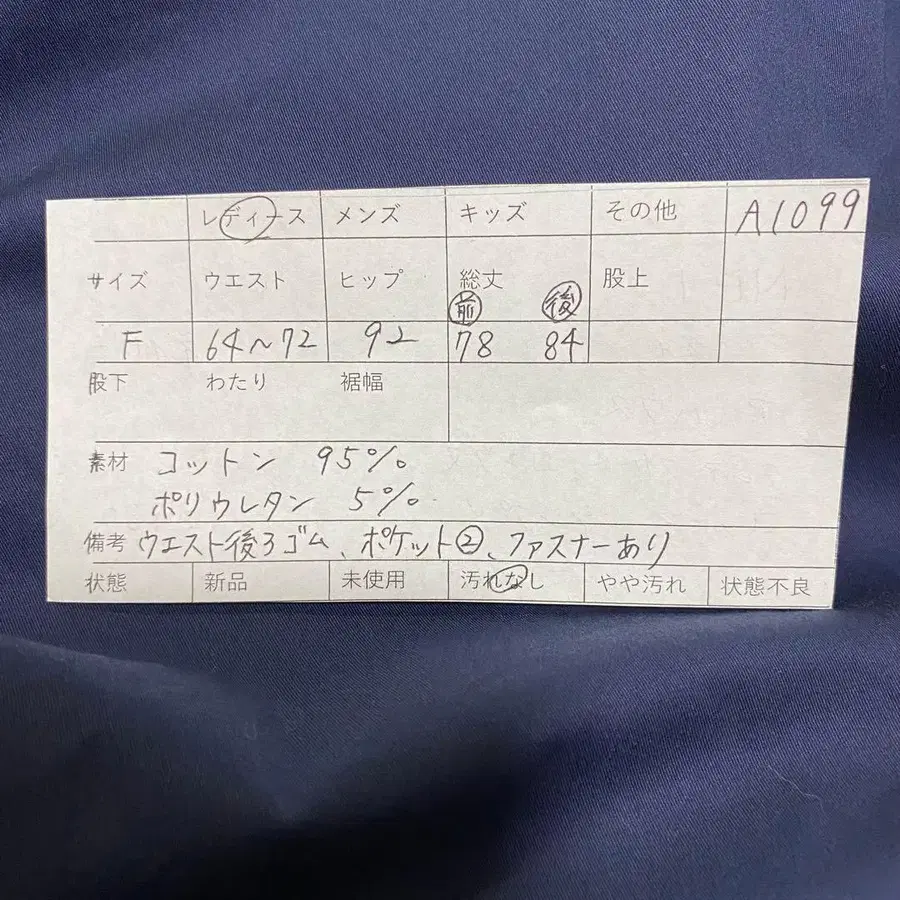 レディース メンズ キッズ その他 A1099
サイズ ウエスト ヒップ 総丈 股上
前 後
F 64~72 92 78 84
股下 わたり 裾幅
素材 コットン 95%
ポリウレタン 5%
備考 ウエスト後ろゴム、ポケット②、ファスナーあり
状態 新品 未使用 汚れなし やや汚れ 状態不良